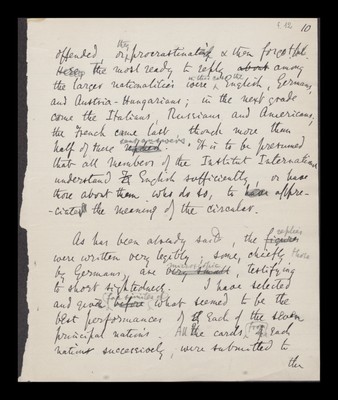 10
offended, or, they procrastinated & then forgot ful.
the most ready to reply about among
the larger nationalities were in that order the English, Germans,
and Austria-Hungarians; in the next grade
came the Italians, Russians and Americans,
the French came last, though more than
half of these answered. It is to be presumed
that all members of the Institut International
understand English sufficiently, or have
those about them who do so, to appre-
-ciate the meaning of the circular.
As has been already said, the figures replies
were written very legibly; some, chiefly those
by Germans, are very small microscopic, testifying
to short sightedness. I have selected
and given facsimiles of before what seemed to be the
best performances of each of the seven
principal nations. All the cards, of each
nation successively, were submitted to
the